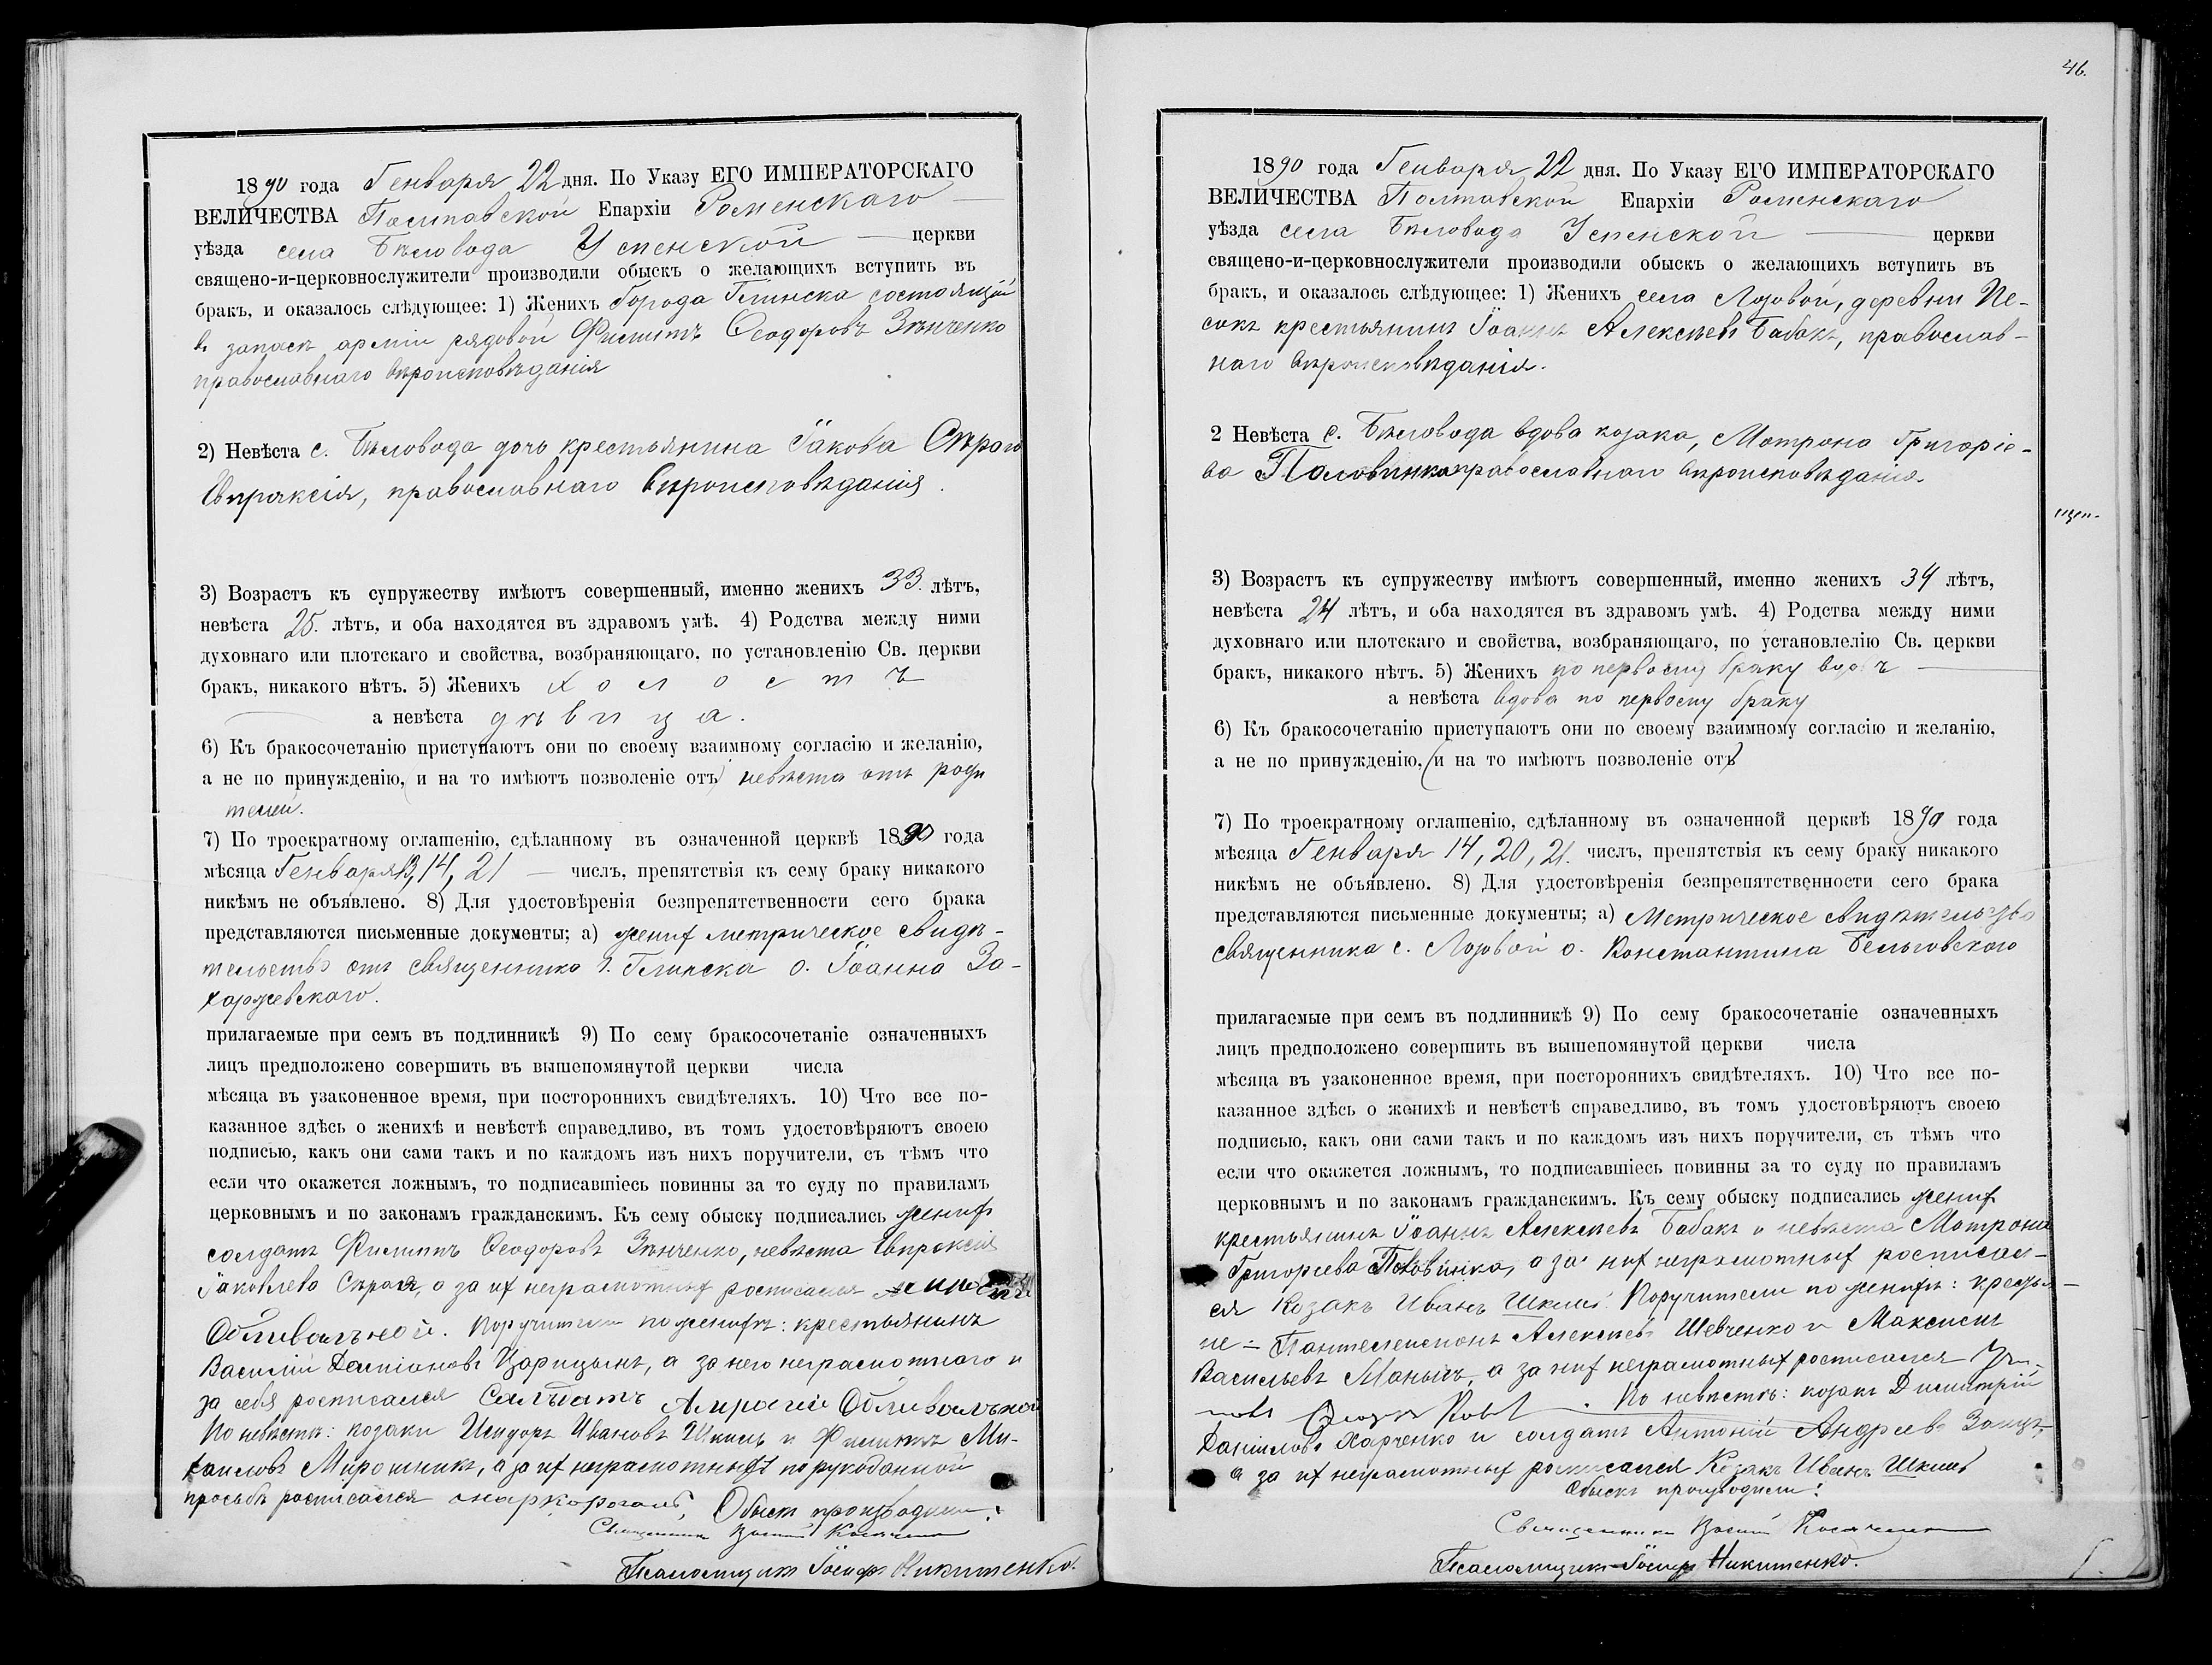 1890 года Генваря 22 дня. По Указу ЕГО ИМПЕРАТОРСКАГО
ВЕЛИЧЕСТВА Полтавской Епархіи Роменскаго
уѣзда села Бѣловода Успенской церкви
священо-и-церковнослужители производили обыскъ о желающихъ вступить въ
бракъ, и оказалось слѣдующее: 1) Женихъ Города Глинска состоящій
въ запасѣ арміи рядовой Филиппъ Ѳеодоровъ Зѣнченко
православнаго вѣроисповѣданія
2) Невѣста с. Бѣловода дочь крестьянина Іакова Сѣраго
Евпраксія, православнаго вѣроисповѣданія.
3) Возрастъ къ супружеству имѣютъ совершенный, именно женихъ 33. лѣтъ,
невѣста 25. лѣтъ, и оба находятся въ здравомъ умѣ. 4) Родства между ними
духовнаго или плотскаго и свойства, возбраняющаго, по установленію Св. церкви
бракъ, никакого нѣтъ. 5) Женихъ холостъ
а невѣста дѣвица.
6) Къ бракосочетанію приступаютъ они по своему взаимному согласію и желанію,
а не по принужденію, (и на то имѣютъ позволеніе отъ) невѣста отъ роди
телей.
7) По троекратному оглашенію, сдѣланному въ означенной церквѣ 1890 года
мѣсяца Генваря 13, 14, 21 числъ, препятствія къ сему браку никакого
никѣмъ не объявлено. 8) Для удостовѣренія безпрепятственности сего брака
представляются письменные документы; а) жених метрическое свидѣ-
тельство отъ священника г. Глинска о. Іоанна За-
харжевскаго.
прилагаемые при семъ въ подлинникѣ 9) По сему бракосочетаніе означенныхъ
лицъ предположено совершить въ вышепомянутой церкви числа
мѣсяца въ узаконенное время, при постороннихъ свидѣтеляхъ. 10) Что все по-
казанное здѣсь о женихѣ и невѣстѣ справедливо, въ томъ удостовѣряютъ своею
подписью, какъ они сами такъ и по каждомъ изъ нихъ поручители, съ тѣмъ что
если что окажется ложнымъ, то подписавшіесь повинны за то суду по правиламъ
церковнымъ и по законамъ гражданскимъ. Къ сему обыску подписались жених
солдатъ Филиппъ Ѳеодоровъ Зѣнченко, невѣста Евпраксія
Іаковлева Сѣрая, а за их неграмотных росписался
Обливальной. Поручители по женихѣ: крестьянинъ
Василій Даміановъ Царицынъ, а за него неграмотнаго и
за себя росписался Салъдатъ Обливальной
По невѣстѣ: козаки Исидоръ Ивановъ Шкиль и Филиппъ Ми-
хаиловъ Мирошникъ, а за их неграмотных по рукоданной
просьбѣ росписался Обыскъ производили:
Священникъ
Псаломщикъ Іосифъ Никитенко.
46.
1890 года Генваря 22 дня. По Указу ЕГО ИМПЕРАТОРСКАГО
ВЕЛИЧЕСТВА Полтавской Епархіи Роменскаго
уѣзда села Бѣловода Успенской церкви
священо-и-церковнослужители производили обыскъ о желающихъ вступить въ
бракъ, и оказалось слѣдующее: 1) Женихъ села Лозовой, деревни Пе-
сокъ крестьянинъ Іоаннъ Алексѣевъ Бабакъ, православ-
наго вѣроисповѣданія.
2 Невѣста с. Бѣловода вдова козака, Матрона Григоріе-
ва Половинка православнаго вѣроисповѣданія.
3) Возрастъ къ супружеству имѣютъ совершенный, именно женихъ 34 лѣтъ,
невѣста 24 лѣтъ, и оба находятся въ здравомъ умѣ. 4) Родства между ними
духовнаго или плотскаго и свойства, возбраняющаго, по установлелію Св. церкви
бракъ, никакого нѣтъ. 5) Женихъ по первому браку вдовъ
а невѣста вдова по первому браку
6) Къ бракосочетанію приступаютъ они по своему взаимному согласію и желанію,
а не по принужденію, (и на то имѣютъ позволеніе отъ)
7) По троекратному оглашенію, сдѣланному въ означенной церквѣ 1890 года
мѣсяца Генваря 14, 20, 21. числъ, препятствія къ сему браку никакого
никѣмъ не объявлено. 8) Для удостовѣренія безпрепятственности сего брака
представляются письменные документы; а) Метрическое свидѣтельство
священника с. Лозовой о. Константина Бельговскаго
прилагаемые при семъ въ подлинникѣ 9) По сему бракосочетаніе означенныхъ
лицъ предположено совершить въ вышепомянутой церкви числа
мѣсяца въ узаконенное время, при постороннихъ свидѣтеляхъ. 10) Что все по-
казанное здѣсь о женихѣ и невѣстѣ справедливо, въ томъ удостовѣряютъ своею
подписью, какъ они сами такъ и по каждомъ изъ нихъ поручители, съ тѣмъ что
если что окажется ложнымъ, то подписавшіесь повинны за то суду по правиламъ
церковнымъ и по законамъ гражданскимъ. Къ сему обыску подписались жених
крестьянинъ Іоаннъ Алексѣевъ Бабакъ и невѣста Матрона
Григоріева Половинка, а за них неграмотных росписал-
ся Козакъ Иванъ Шкиль. Поручители по женихѣ: крестья-
не - Пантелеимонъ Алексѣевъ Шевченко и Максимъ
Васильевъ Манычъ, а за них неграмотных росписался
По невѣстѣ: козакъ Димитрій
Даніиловъ Харченко и солдатъ Антоній Андреевъ Заяцъ,
а за их неграмотных росписался Козакъ Иванъ Шкиль
Обыскъ производили:
Священникъ
Псаломщикъ Іосифъ Никитенко.